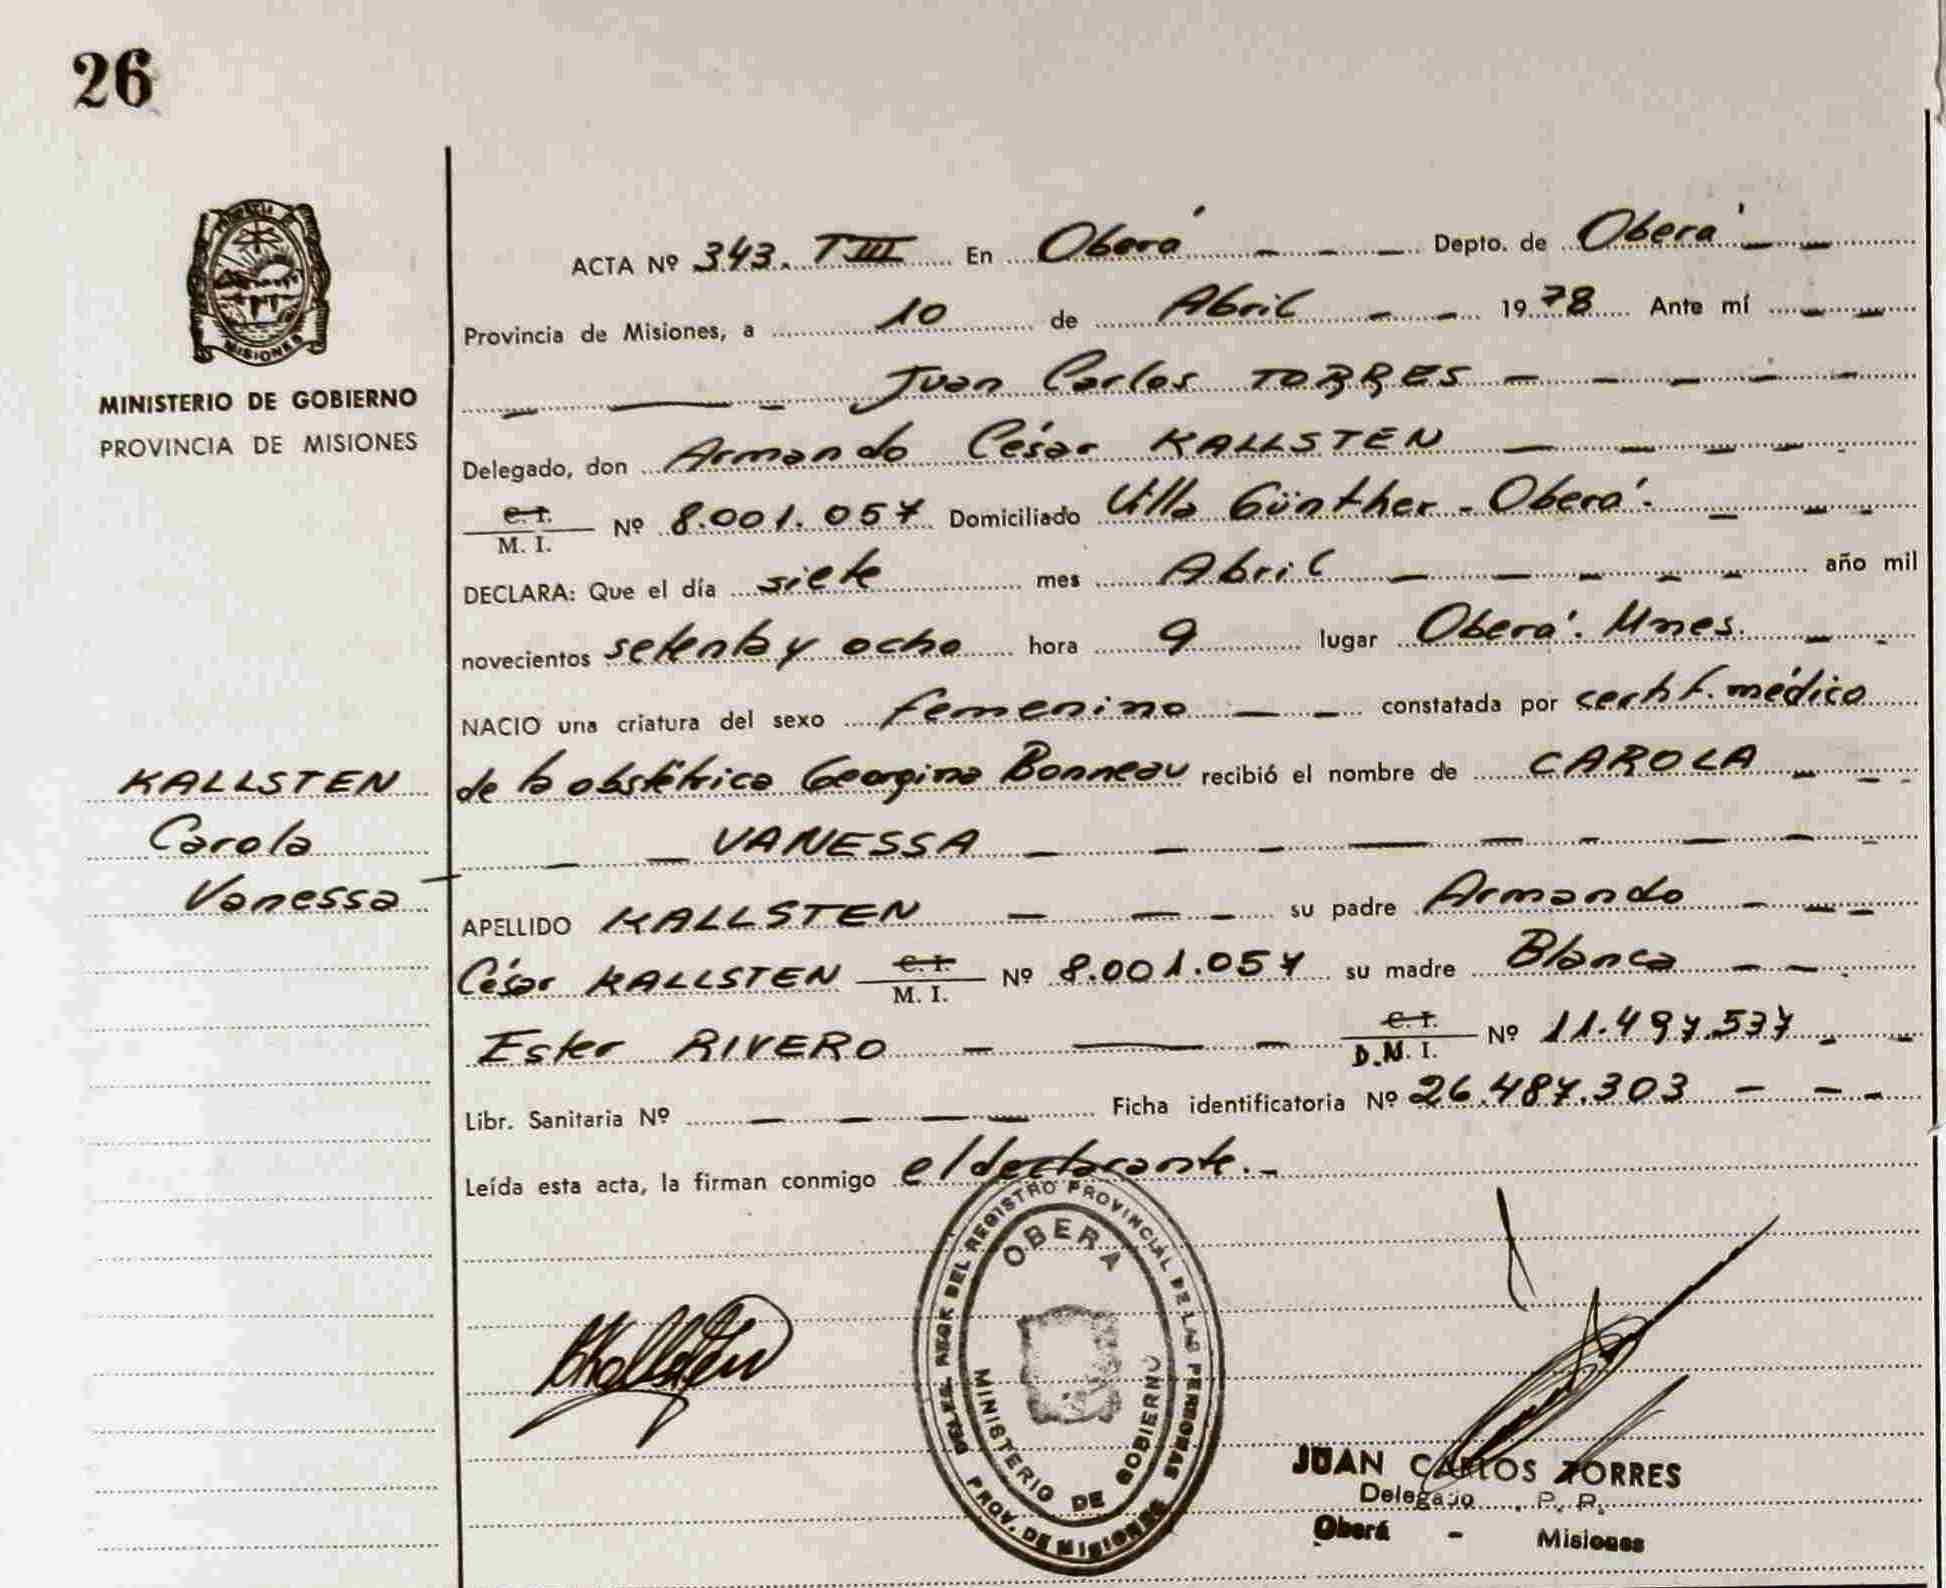 26
MISIONES
MINISTERIO DE GOBIERNO
PROVINCIA DE MISIONES
KALLSTEN
Carola
Vanessa
ACTA Nº 343. T III En Oberá Depto. de Oberá
Provincia de Misiones, a 10 de Abril 1978 Ante mí
Juan Carlos TORRES
Delegado, don Armando César KALLSTEN
C. I.
M. I. Nº 8.001.057 Domiciliado Villa Günther - Oberá.
DECLARA: Que el día siete mes Abril año mil
novecientos setenta y ocho hora 9 lugar Oberá. Mnes.
NACIO una criatura del sexo femenino constatada por certif. médico
de la obstétrica Georgina Bonneau recibió el nombre de CAROLA
VANESSA
APELLIDO KALLSTEN su padre Armando
César KALLSTEN C. I. M. I. Nº 8.001.057 su madre Blanca
Ester RIVERO C. I. D.M. I. Nº 11.497.537
Libr. Sanitaria Nº Ficha identificatoria Nº 26.487.303
Leída esta acta, la firman conmigo el declarante.-
DEL REGISTRO PROVINCIAL DE LAS PERSONAS
OBERA
MINISTERIO DE GOBIERNO
PROV. DE MISIONES
JUAN CARLOS TORRES
Delegado P. P.
Oberá - Misiones